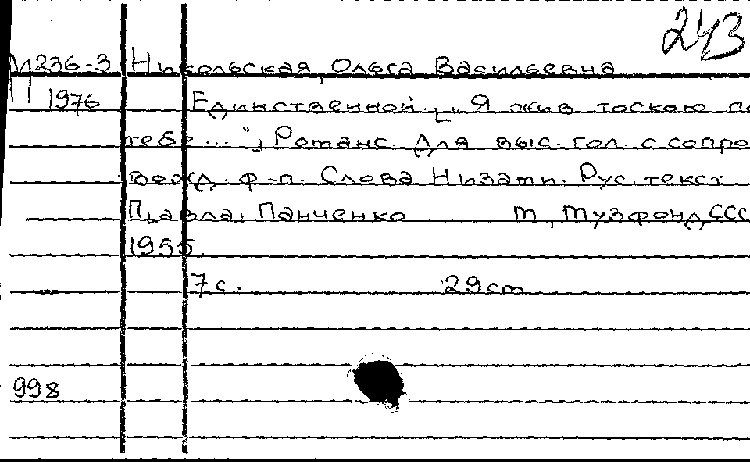 243
М236-3 Никольская, Ольга Васильевна
1976 Единственной. [„Я жив тоскою по
тебе..."], Романс для выс. гол. с сопро
вожд. ф-п. Слова Низами. Рус. текст
П[авла] Панченко М, Музфонд ССС
1955.
7 с. 29 cm
998